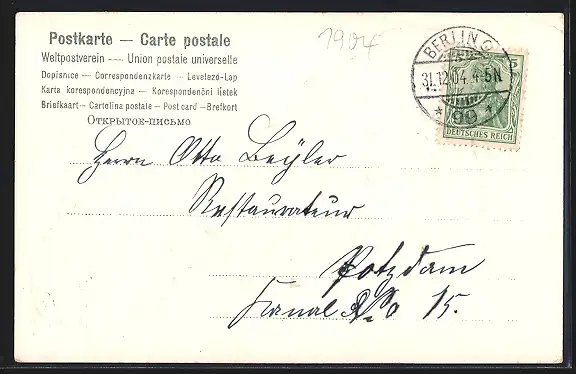 Postkarte — Carte postale
Weltpostverein — Union postale universelle
Dopisnice — Correspondenzkarte — Levelező-Lap
Karta korespondencyjna — Korespondenční lístek
Briefkaart — Cartolina postale — Post card — Brefkort
Открытое-письмо
1904
BERLIN C
31.12.04. 4-5N
* 90 *
5
DEUTSCHES REICH
Herrn Otto
Restaurateur
Potzdam
Kanal 15.